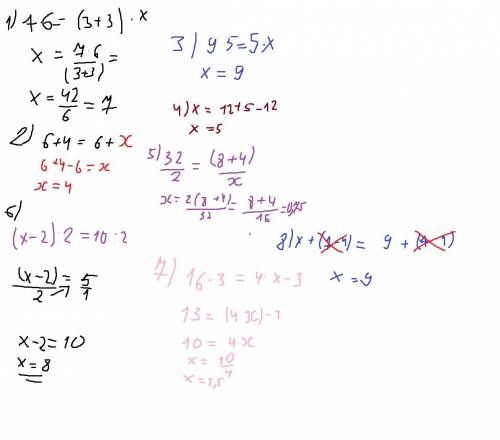 1) 7·6 = (3+3)·x
x = 7·6/(3+3) =
x = 42/6 = 7
2) 6+4 = 6+x
6+4-6 = x
x = 4
3) 9·5 = 5·x
x = 9
4) x = 12+5-12
x = 5
5) 32/2 = (8+4)/x
x = 2(8+4)/32 = 8+4/16 = 0,75
6)
(x-2):2 = 10:2
(x-2)/2 = 5/1
x-2 = 10
x = 8
7) 16-3 = 4·x-3
13 = (4x)-3
10 = 4x
x = 10/4
x = 2,5
8) x + (9-4) = 9 + (9-4)
x = 9